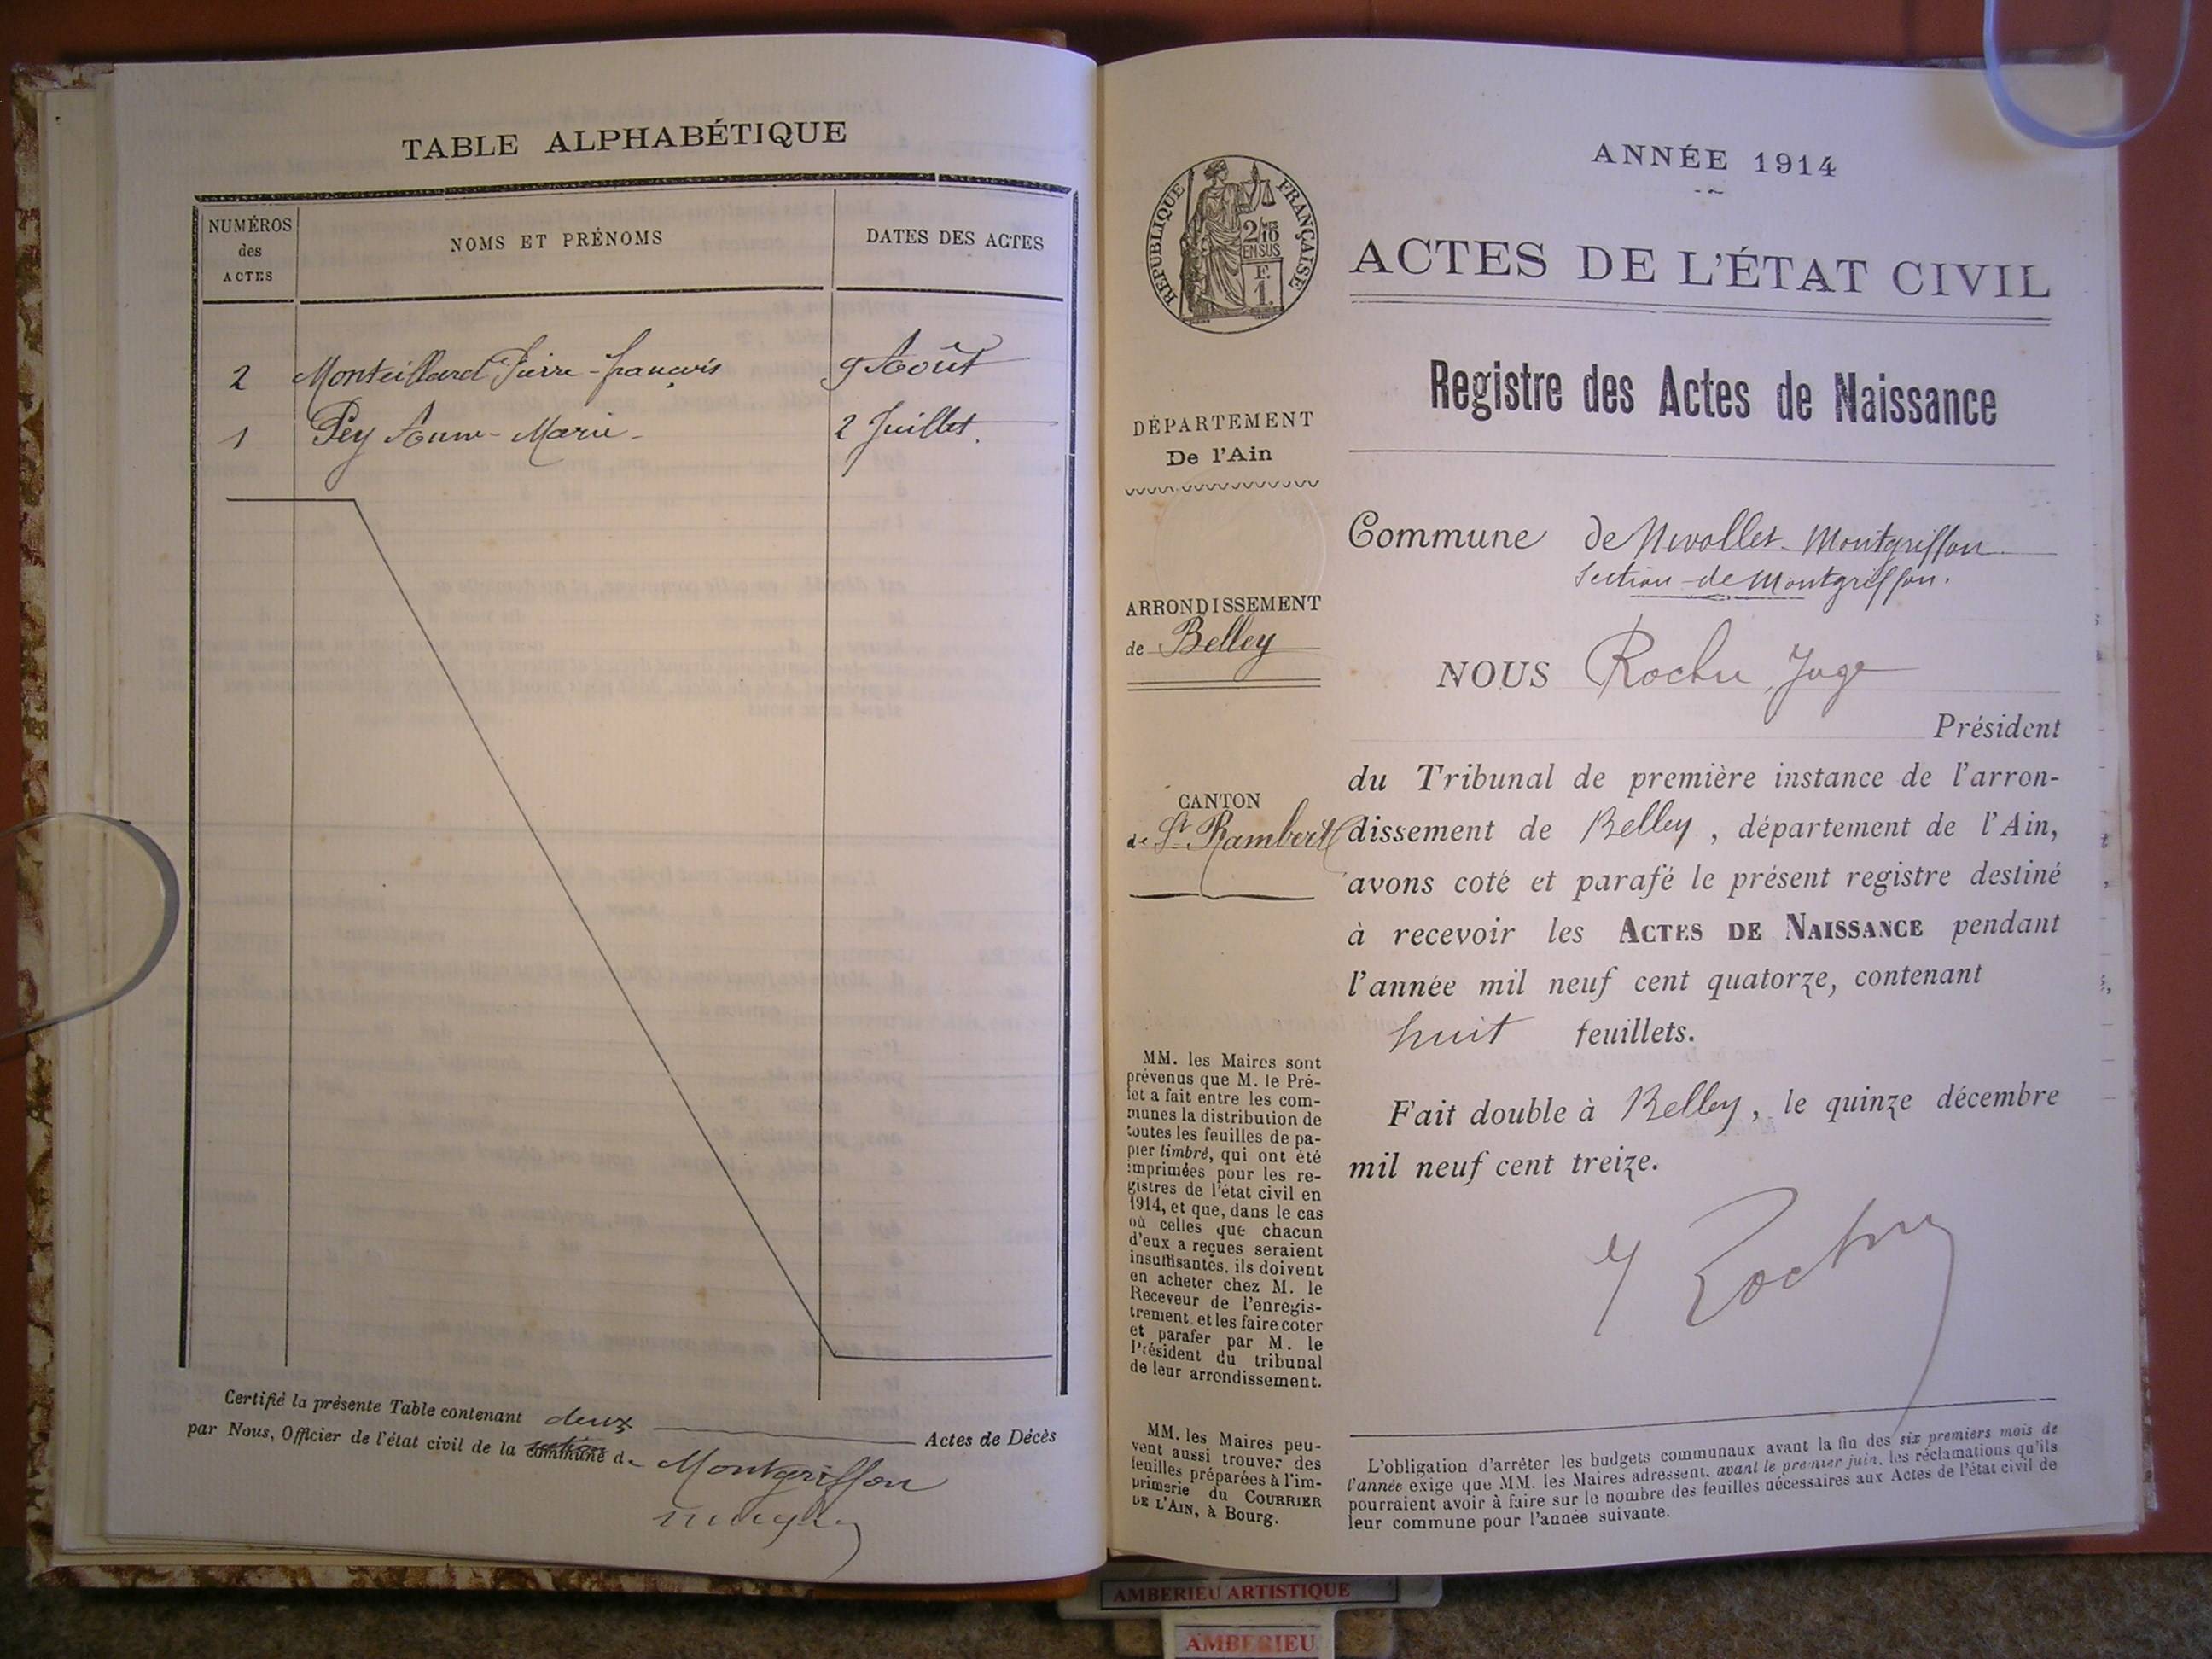 TABLE ALPHABÉTIQUE
NUMÉROS
des
ACTES
NOMS ET PRÉNOMS
DATES DES ACTES
2 Monteillard Pierre-françois 9 Août
1 Pey Anne-Marie 2 Juillet.
Certifié la présente Table contenant deux Actes de Décès
par Nous, Officier de l'état civil de la commune de Montgriffon
ANNÉE 1914
RÉPUBLIQUE FRANÇAISE
2/10 EN SUS
F.
1.
ACTES DE L'ÉTAT CIVIL
Registre des Actes de Naissance
DÉPARTEMENT
De l'Ain
Commune de Nivollet-Montgriffon
Section de Montgriffon.
ARRONDISSEMENT
de Belley
NOUS Rochu Juge
Président
du Tribunal de première instance de l'arron-
dissement de Belley, département de l'Ain,
avons coté et parafé le présent registre destiné
à recevoir les ACTES DE NAISSANCE pendant
l'année mil neuf cent quatorze, contenant
huit feuillets.
Fait double à Belley, le quinze décembre
mil neuf cent treize.
Rochu
CANTON
de St Rambert
MM. les Maires sont
prévenus que M. le Pré-
fet a fait entre les com-
munes la distribution de
toutes les feuilles de pa-
pier timbré, qui ont été
imprimées pour les re-
gistres de l'état civil en
1914, et que, dans le cas
où celles que chacun
d'eux a reçues seraient
insuffisantes, ils doivent
en acheter chez M. le
Receveur de l'enregis-
trement, et les faire coter
et parafer par M. le
Président du tribunal
de leur arrondissement.
MM. les Maires peu-
vent aussi trouver des
feuilles préparées à l'im-
primerie du COURRIER
DE L'AIN, à Bourg.
L'obligation d'arrêter les budgets communaux avant la fin des six premiers mois de
l'année exige que MM. les Maires adressent, avant le premier juin, les réclamations qu'ils
pourraient avoir à faire sur le nombre des feuilles nécessaires aux Actes de l'état civil de
leur commune pour l'année suivante.
AMBERIEU ARTISTIQUE
AMBERIEU